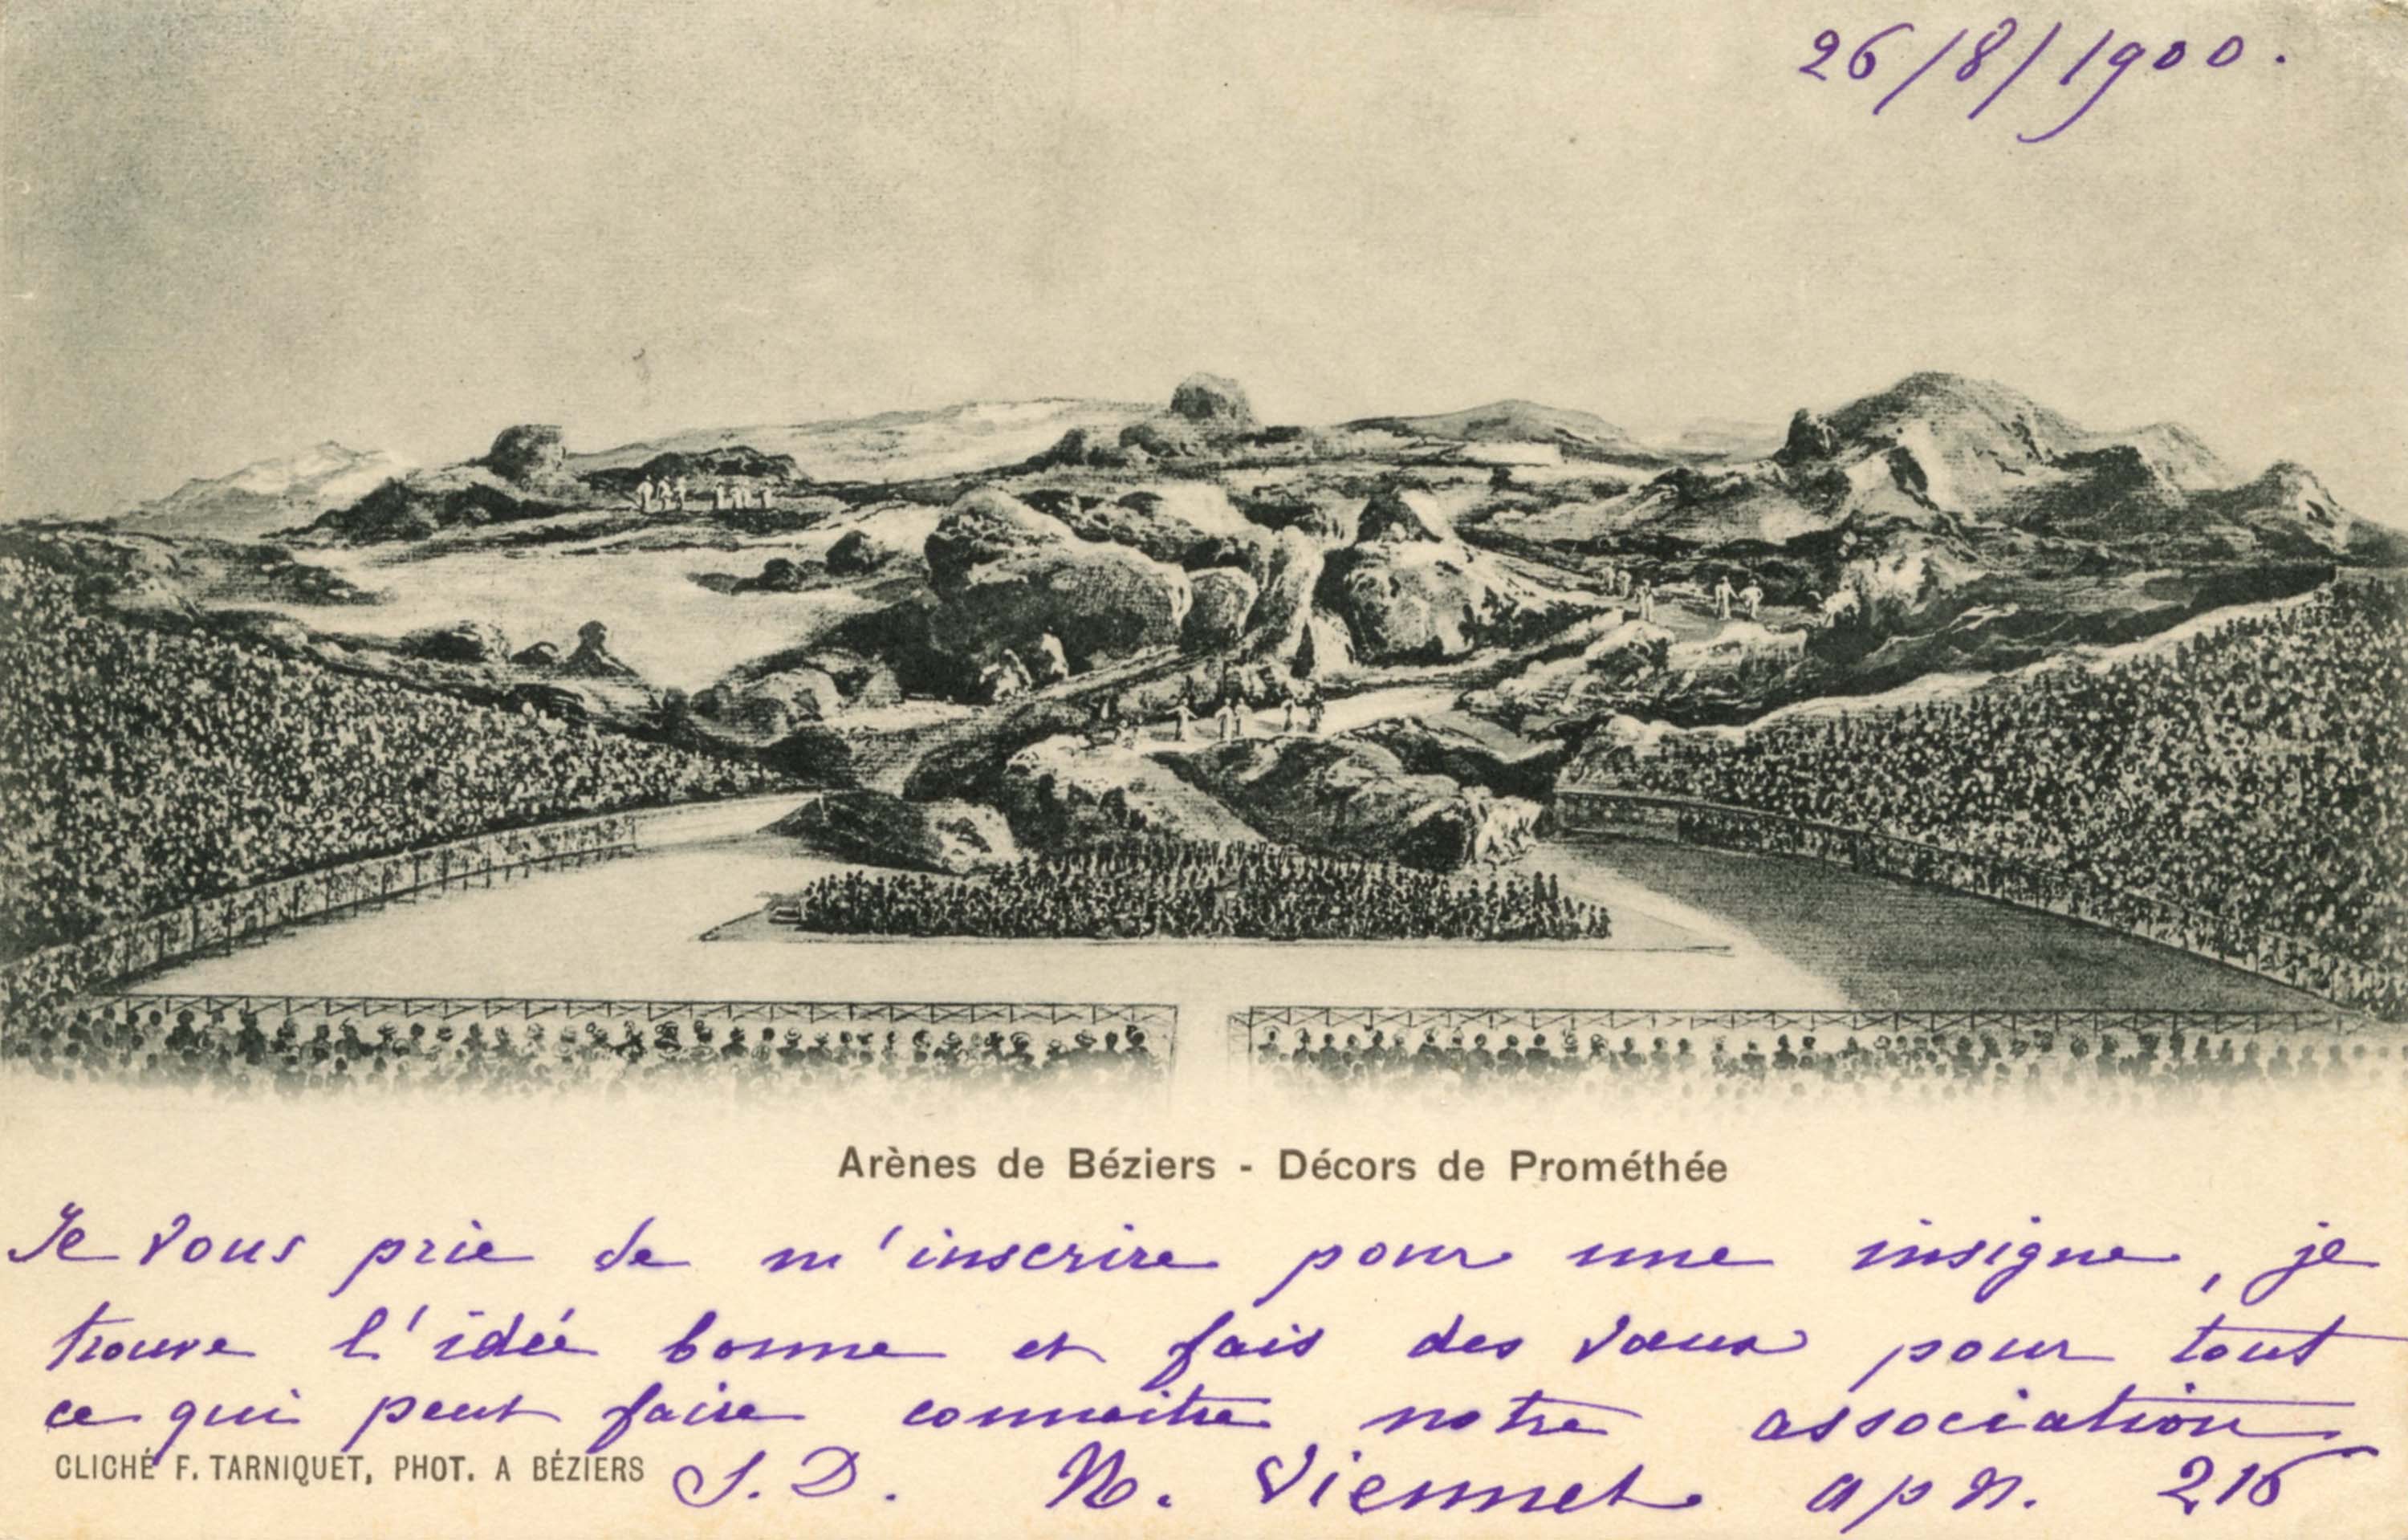 26/8/1900.
Arènes de Béziers - Décors de Prométhée
Je vous prie de m'inscrire pour une insigne, je
trouve l'idée bonne et fais des vœux pour tout
ce qui peut faire connaitre notre association
CLICHÉ F. TARNIQUET, PHOT. A BÉZIERS
S. D. N. Viennet apn. 216